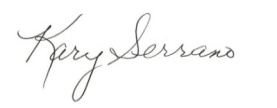 Kary Serrano